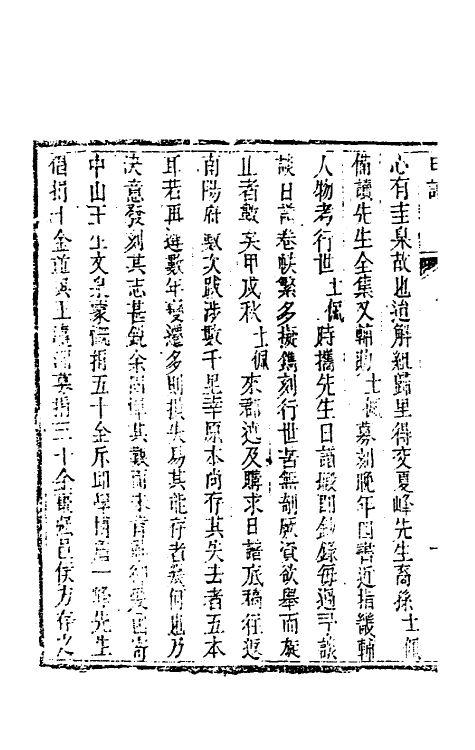 日譜
心有主臬故也逍解組歸里得交夏峰先生裔孫士佩
備讀先生全集又輔助士佩募刻晚年四書近指畿輔
人物考行世士佩時攜先生日譜撮閱鈔錄每過予談
談日譜卷帙繁多擬鐫刻行世苦無剞劂資欲舉而旋
止者數矣甲戌秋士佩來郡述及購求日譜底稿往返
南陽府數次跋涉數千里幸原本尚存其失去者五本
耳若再遲數年變遷多則損失易其能存者幾何也乃
決意發刻其志甚銳余
中山王生文臬蒙 捐五十金斥邱學博 一 先生
倡捐十金 王 募捐三十金 邑侯方存之